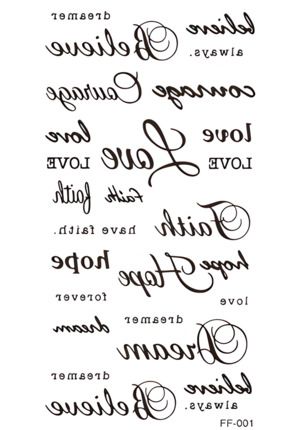 dreamer believe
Believe
believe always.
Courage courage
love Love love
LOVE LOVE
faith Faith Faith
have faith.
hope Hope hope
forever love
dream dreamer
Dream
dreamer believe
believe Believe always.
FF-001